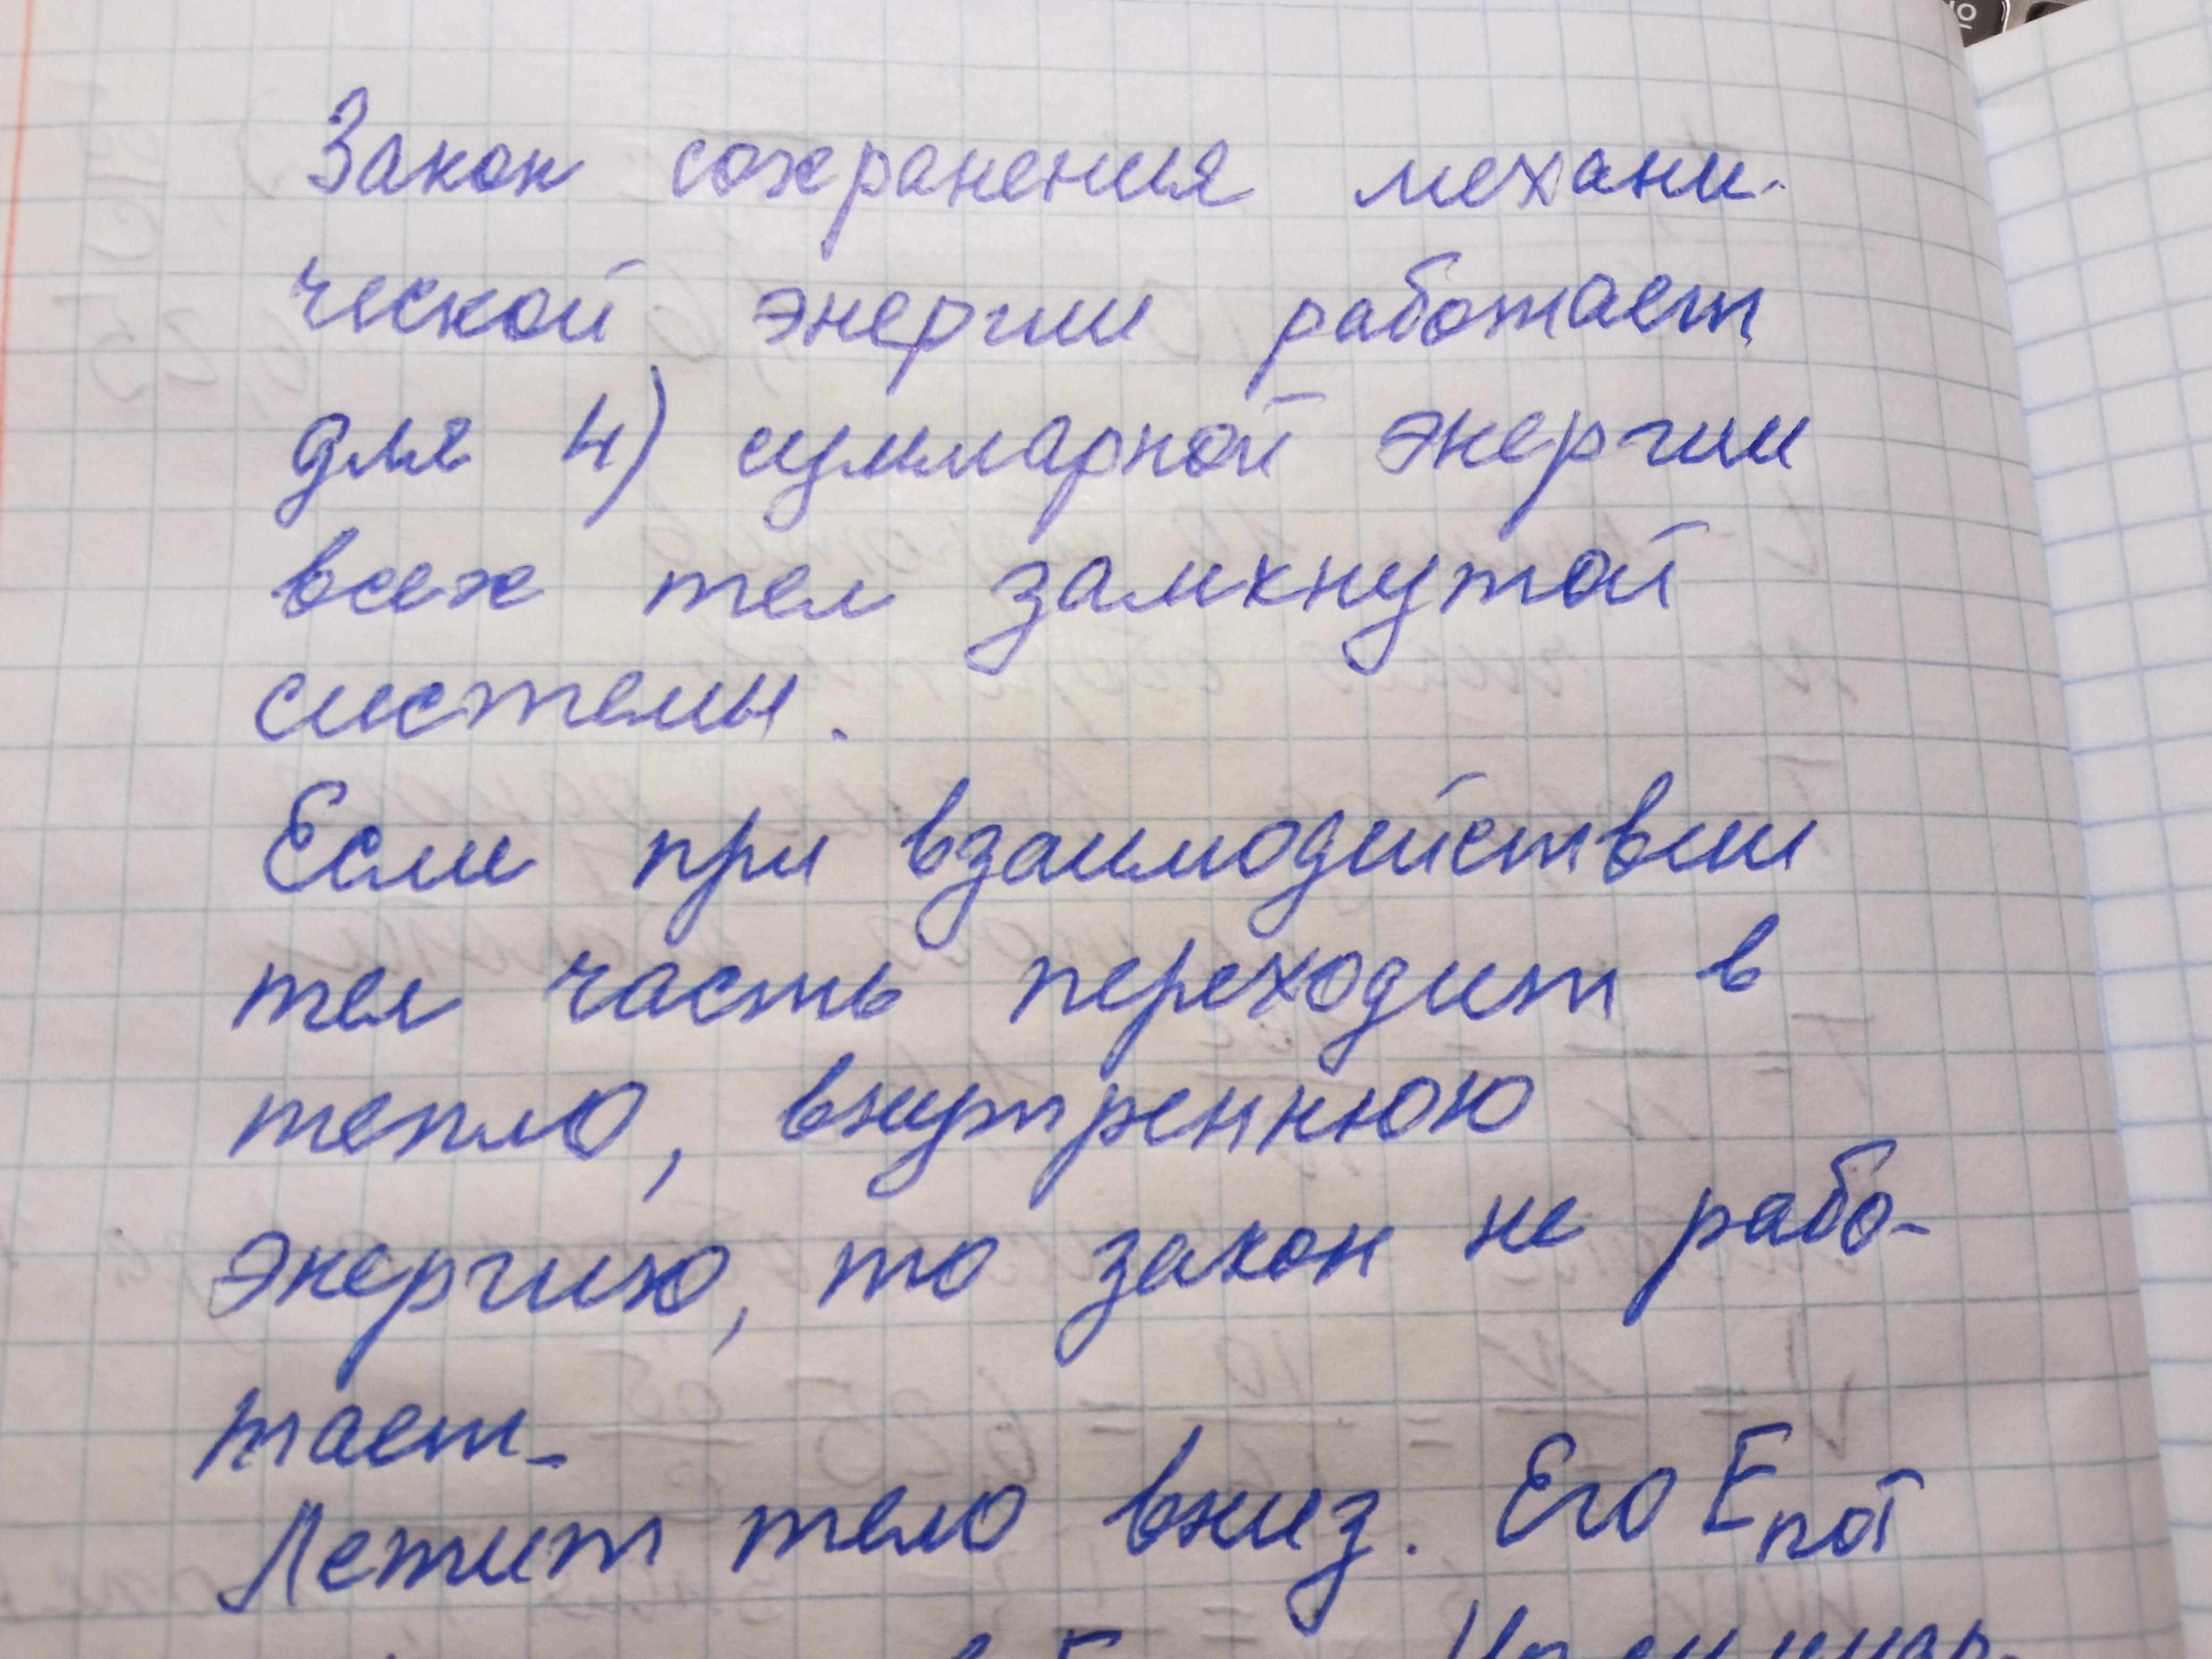 Закон сохранения механи-
ческой энергии работает
для 4) суммарной энергии
всех тел замкнутой
системы.
Если при взаимодействии
тел часть переходит в
тепло, внутреннюю
энергию, то закон не рабо-
тает.
Летит тело вниз. Его Eпот